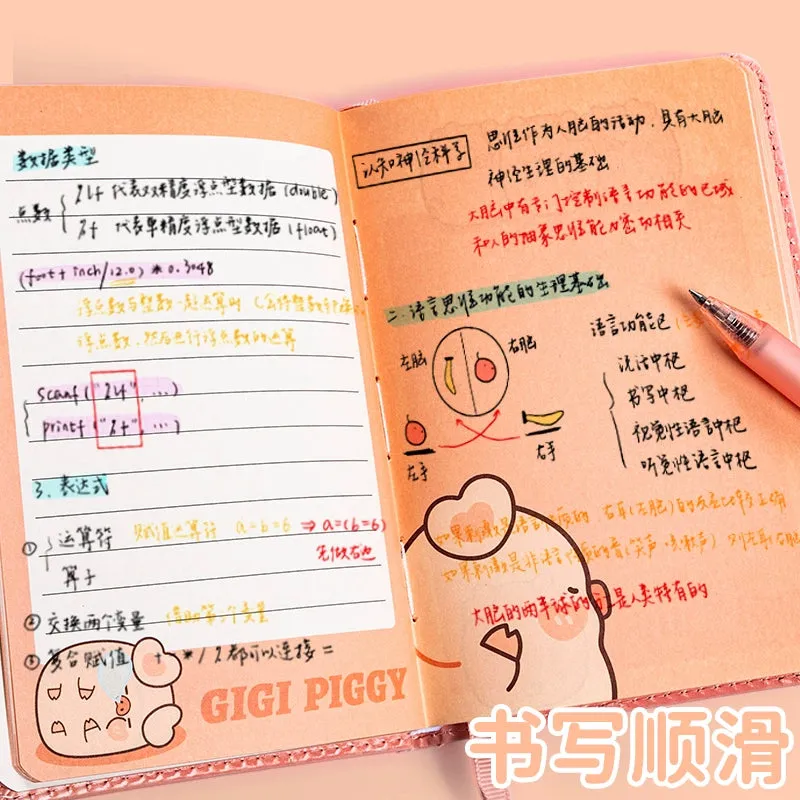 数据类型
点数
%lf 代表双精度浮点型数据(double)
%f 代表单精度浮点型数据(float)
(foot+inch/12.0)*0.3048
浮点数与整数一起运算时
浮点数,然后进行浮点数的运算
scanf("%lf",...)
printf("%f",...)
3. 表达式
① 运算符 赋值运算符 a=b=6 ⇒ a=(b=6)
先做右边
算子
② 交换两个变量 借助第三个变量
③ 复合赋值 + - * / % 都可以连接 =
GIGI PIGGY
认知神经科学
思维作为人脑的活动,具有大脑
神经生理的基础
大脑中有专门控制语言功能的区域
和人的抽象思维能力密切相关
二.语言思维功能的生理基础
左脑
右脑
左手
右手
语言功能区
说话中枢
书写中枢
视觉性语言中枢
听觉性语言中枢
如果刺激是语言性质的 右耳(左脑)的
如果刺激是非语言性质的音(笑声
大脑的两半球的 是人类特有的
书写顺滑